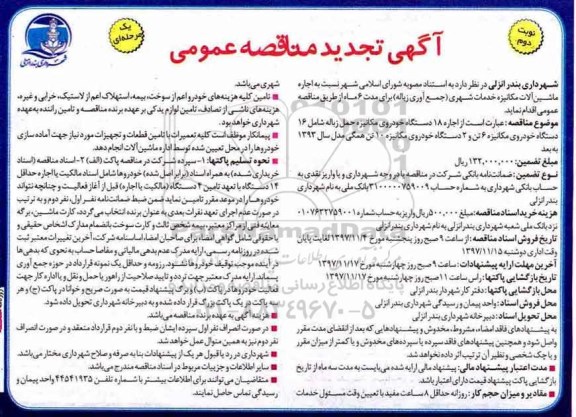 آگهی تجدید مناقصه عمومی
نوبت دوم
یک مرحله‌ای
شهرداری بندر انزلی
شهرداری بندر انزلی در نظر دارد به استناد مصوبه شورای اسلامی شهر نسبت به اجاره
ماشین آلات مکانیزه خدمات شهری (جمع آوری زباله) برای مدت ۶ ماه از طریق مناقصه
عمومی اقدام نماید.
موضوع مناقصه: عبارت است از اجاره ۱۸ دستگاه خودروی مکانیزه حمل زباله شامل ۱۶
دستگاه خودروی مکانیزه ۶ تن و ۲ دستگاه خودروی مکانیزه ۱۰ تن همگی مدل سال ۱۳۹۲
به بعد
مبلغ تضمین: ۱۳۲,۰۰۰,۰۰۰ ریال
نوع تضمین: ضمانتنامه بانکی شرکت در مناقصه یا در وجه شهرداری و یا واریز نقدی به
حساب بانکی شهرداری به شماره حساب ۳۱۰۰۰۰۰۷۵۹۰۰۹ بانک ملی به نام شهرداری
بندر انزلی
هزینه خرید اسناد مناقصه: مبلغ ۵۰۰,۰۰۰ ریال واریز به حساب شماره ۰۱۰۷۶۳۲۷۵۹۰۰۱
نزد بانک ملی شعبه شهرداری بندر انزلی به نام شهرداری بندر انزلی
تاریخ فروش اسناد مناقصه: از ساعت ۹ صبح روز پنجشنبه مورخ ۱۳۹۷/۱۱/۴ لغایت پایان
وقت اداری دوشنبه ۱۳۹۷/۱۱/۱۵
آخرین مهلت ارایه پیشنهادات: ساعت ۹ صبح روز چهارشنبه مورخ ۱۳۹۷/۱۱/۱۷
تاریخ بازگشایی پاکتها: رأس ساعت ۱۱ صبح روز چهارشنبه مورخ ۱۳۹۷/۱۱/۱۷
محل بازگشایی پاکتها: دفتر کار شهردار بندر انزلی
محل فروش اسناد: واحد پیمان و رسیدگی شهرداری بندر انزلی
محل تحویل اسناد: دبیرخانه شهرداری بندر انزلی
به پیشنهادهای فاقد امضاء، مشروط، مخدوش و پیشنهادهایی که بعد از انقضای مدت مقرر
واصل شود و همچنین پیشنهادهای فاقد سپرده یا سپرده‌های مخدوش و یا کمتر از میزان مقرر
و یا چک شخصی و نظیر آن ترتیب اثر داده نخواهد شد.
مدت اعتبار پیشنهاد مالی: پیشنهاد مالی ارایه شده می‌بایست به مدت سه ماه از تاریخ
بازگشایی پاکت پیشنهاد قیمت دارای اعتبار باشد.
مقادیر و میزان حجم کار: روزانه حداقل ۸ ساعت مفید با تعیین وقت مسئول خدمات
شهری می‌باشد.
تامین کلیه هزینه‌های خودرو اعم از سوخت، بیمه، استهلاک اعم از لاستیک، خرابی و غیره،
هزینه‌های ناشی از تصادف، تامین لوازم یدکی بر عهده برنده مناقصه و تامین راننده به عهده
شهرداری خواهد بود.
پیمانکار موظف است کلیه تعمیرات با تامین قطعات و تجهیزات مورد نیاز جهت آماده سازی
خودروها را در محل تعیین شده توسط اداره ماشین آلات انجام دهد.
نحوه تسلیم پاکتها: ۱- سپرده شرکت در مناقصه پاکت (الف) ۲- اسناد مناقصه (اسناد
خریداری شده) به همراه اسناد (برابر اصل شده) خودروها شامل اسناد مالکیت یا اجاره حداقل
۱۴ دستگاه با تعهد تامین ۴ دستگاه (مالکیت یا اجاره) قبل از آغاز فعالیت و چنانچه نتواند
خودروها را در موعد مقرر تامین نماید ضمن ضبط ضمانت‌نامه نفر اول، نفر دوم و به ترتیب
در صورت عدم اجرای تعهد نفرات بعدی به عنوان برنده انتخاب می‌گردد، کارت ماشین، برگه
معاینه فنی از مراکز معتبر، بیمه شخص ثالث و کارت سوخت بانضمام مدارک اشخاص حقیقی و
یا حقوقی شامل گواهی امضاء برای صاحبان امضاء، اساسنامه شرکت، آخرین تغییرات معتبر ثبت
شده در روزنامه رسمی، ارایه مدرک عدم بدهی مالیاتی و مفاصا حساب به نحوی که بدهی‌ها
در آینده موجب توقیف خودروها نشود، رزومه و حداقل یک نمونه قرارداد در حوزه جمع آوری
پسماند، ارایه مدرک معتبر جهت تردد و تایید صلاحیت از راهور یا حمل و نقل و یا اداره کار جهت
فعالیت خودروها در پاکت (ب) و برگ پیشنهاد قیمت به صورت صریح و خوانا در پاکت (ج) و هر
سه پاکت در یک پاکت بزرگ قرار داده شده و به دبیرخانه شهرداری تحویل داده شود.
هزینه آگهی به عهده برنده مناقصه می‌باشد.
در صورت انصراف نفر اول سپرده ایشان ضبط و با نفر دوم قرارداد منعقد و در صورت انصراف
نفر دوم نیز به همین منوال عمل خواهد شد.
شهرداری در رد یا قبول هر یک از پیشنهادات بنا به صرفه و صلاح شهرداری مختار می‌باشد.
سایر اطلاعات و جزییات مربوط در اسناد مناقصه مندرج می‌باشد.
متقاضیان می‌توانند برای اطلاعات بیشتر با شماره تلفن ۴۴۵۴۱۹۳۵ واحد پیمان و
رسیدگی تماس حاصل نمایند.